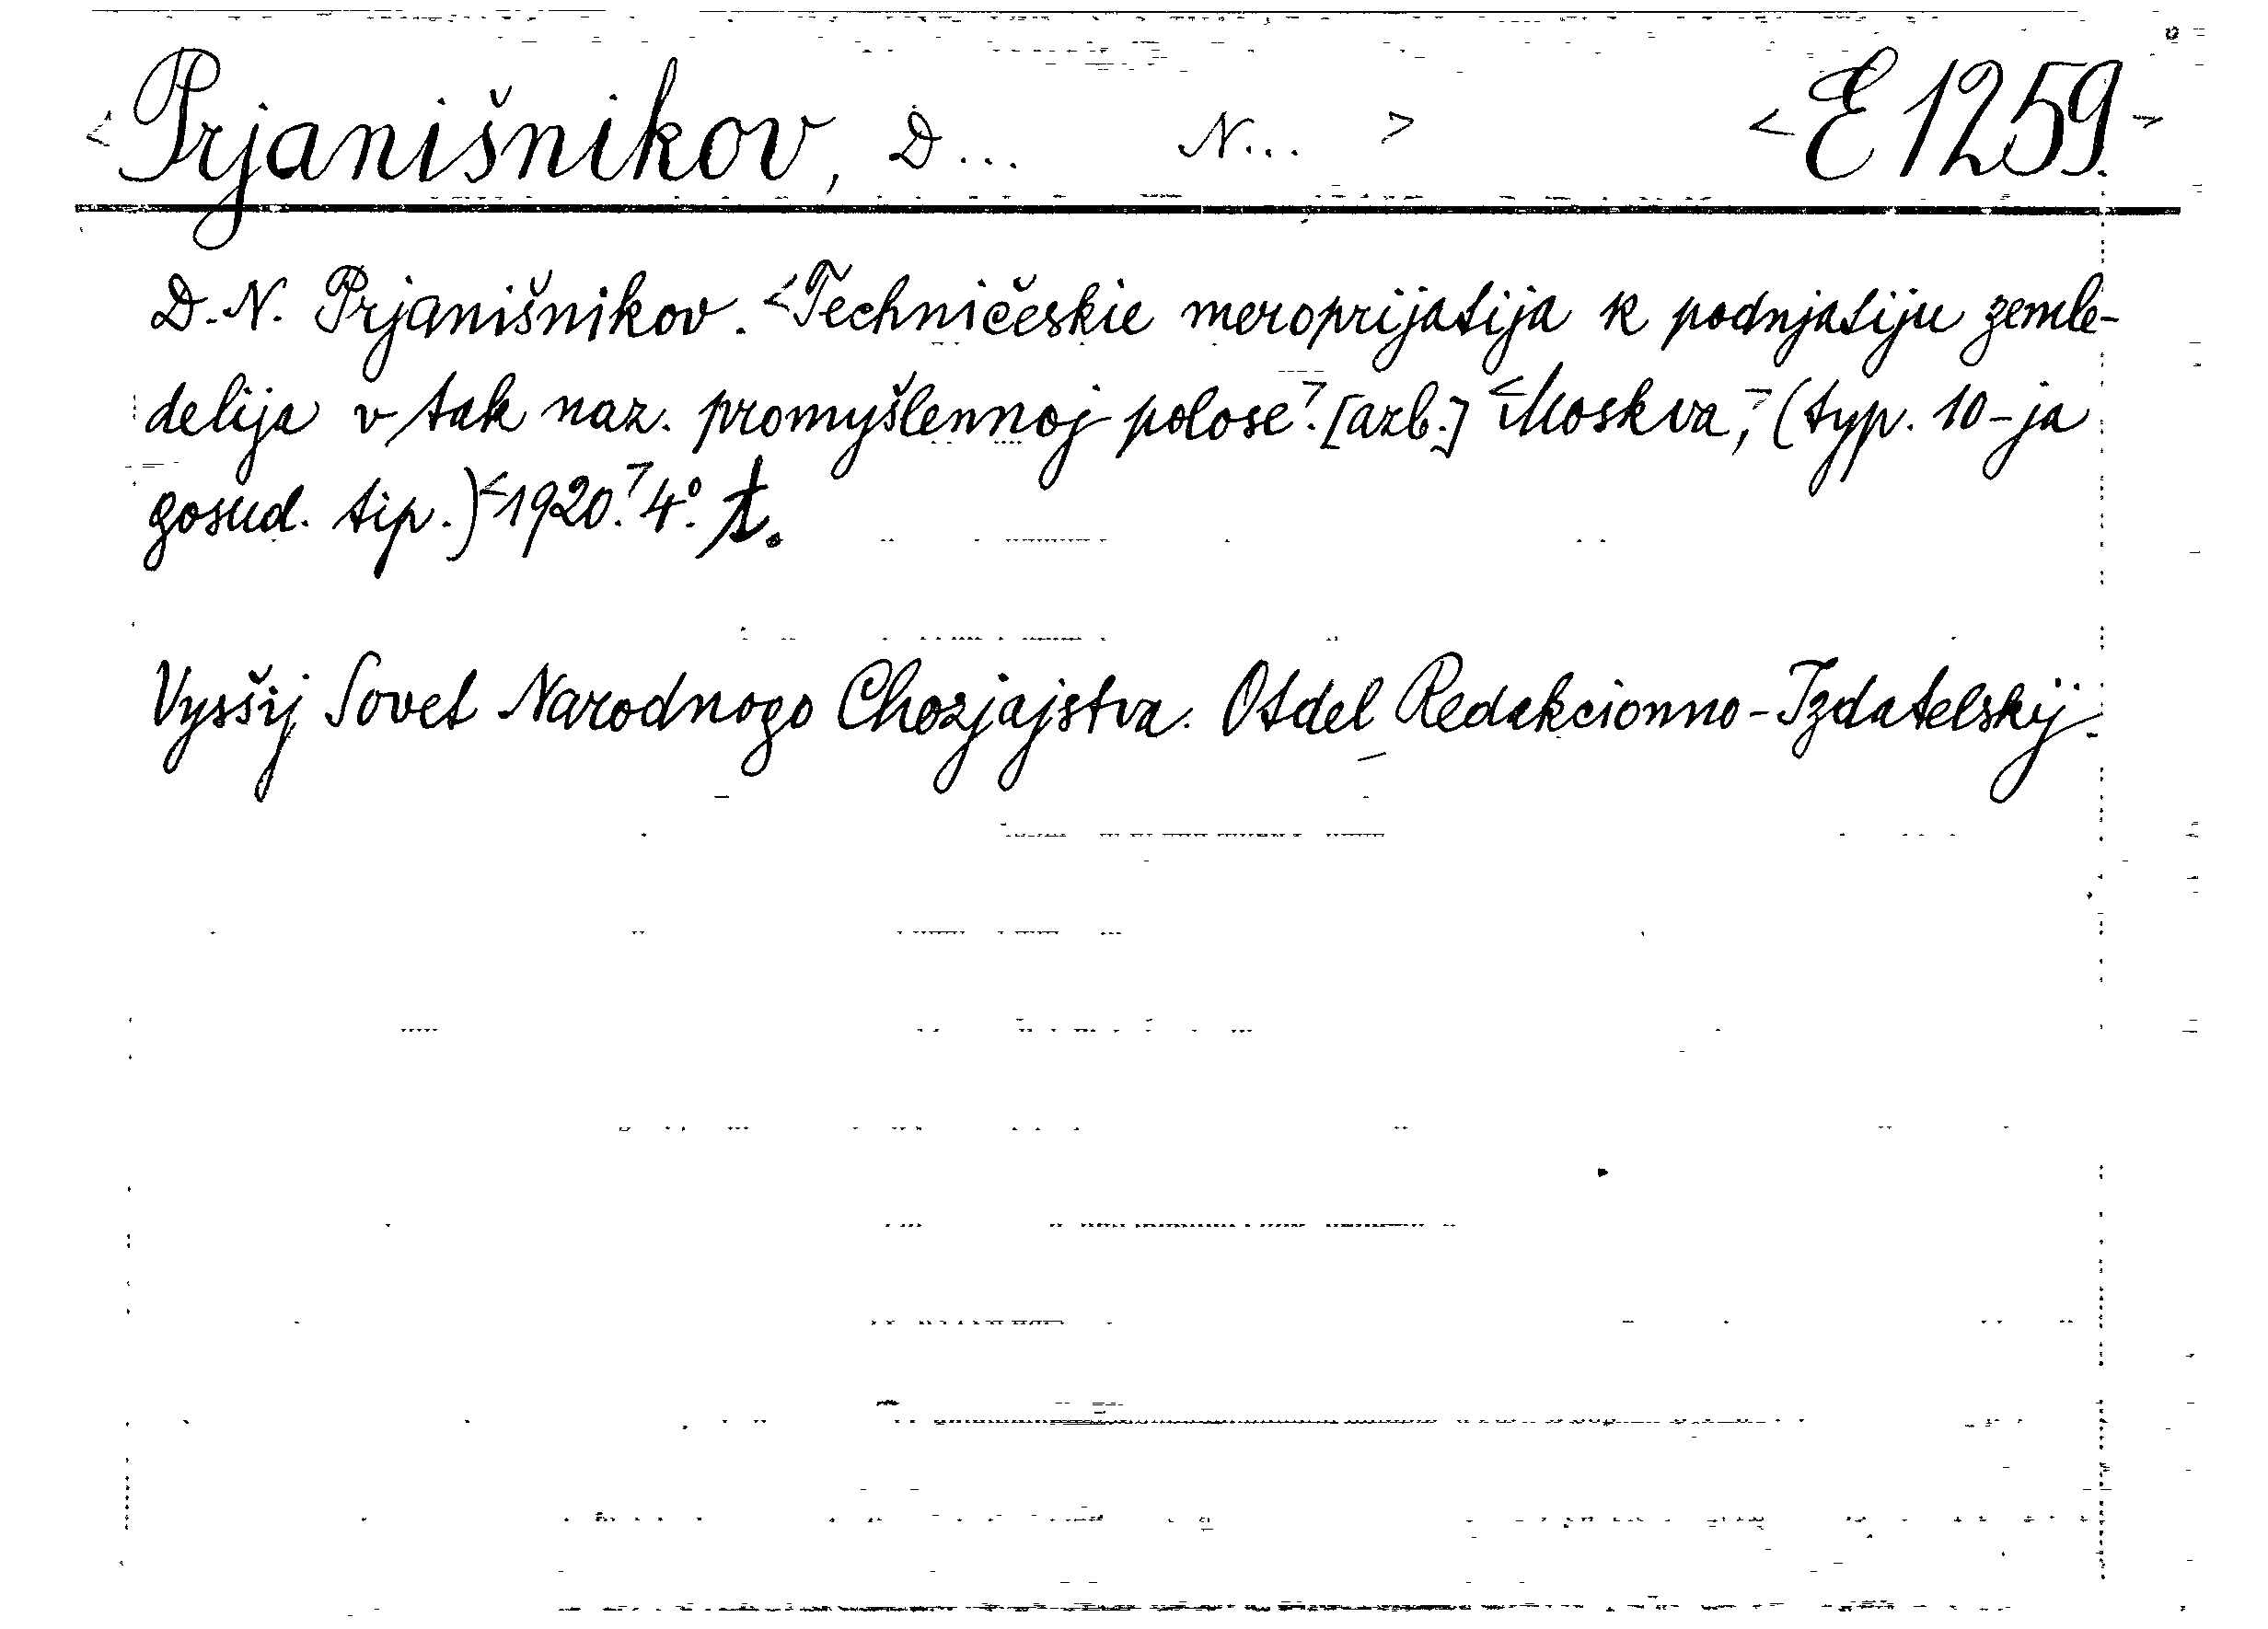 <Prjanišnikov, D... N...> <E 1259.>
D. N. Prjanišnikov. <Techničeskie meroprijatija k podnjatiju zemle-
delija v tak naz. promyšlennoj polose>. [azb.] <Moskva,> (typ. 10-ja
gosud. tip.) <1920.> 4°. t.
Vysšij Sovet Narodnogo Chozjajstva. Otdel Redakcionno-Izdatelskij.